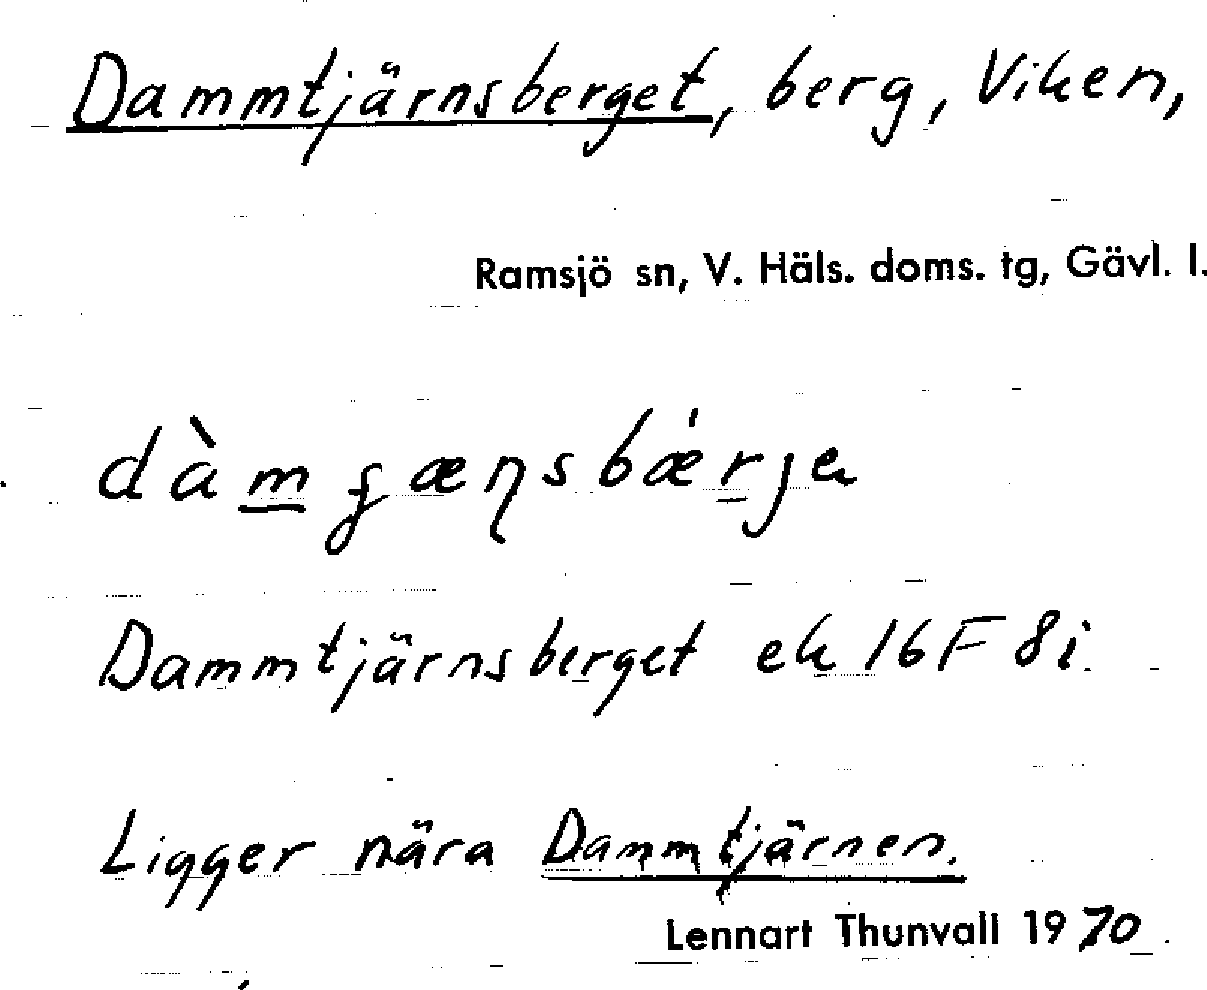 Dammtjärnsberget, berg, Viken,
Ramsjö sn, V. Häls. doms. tg, Gävl. l.
dàm̲ʂæɳsbǽr̲ja
Dammtjärnsberget ek 16F 8i
Ligger nära Dammtjärnen.
Lennart Thunvall 1970